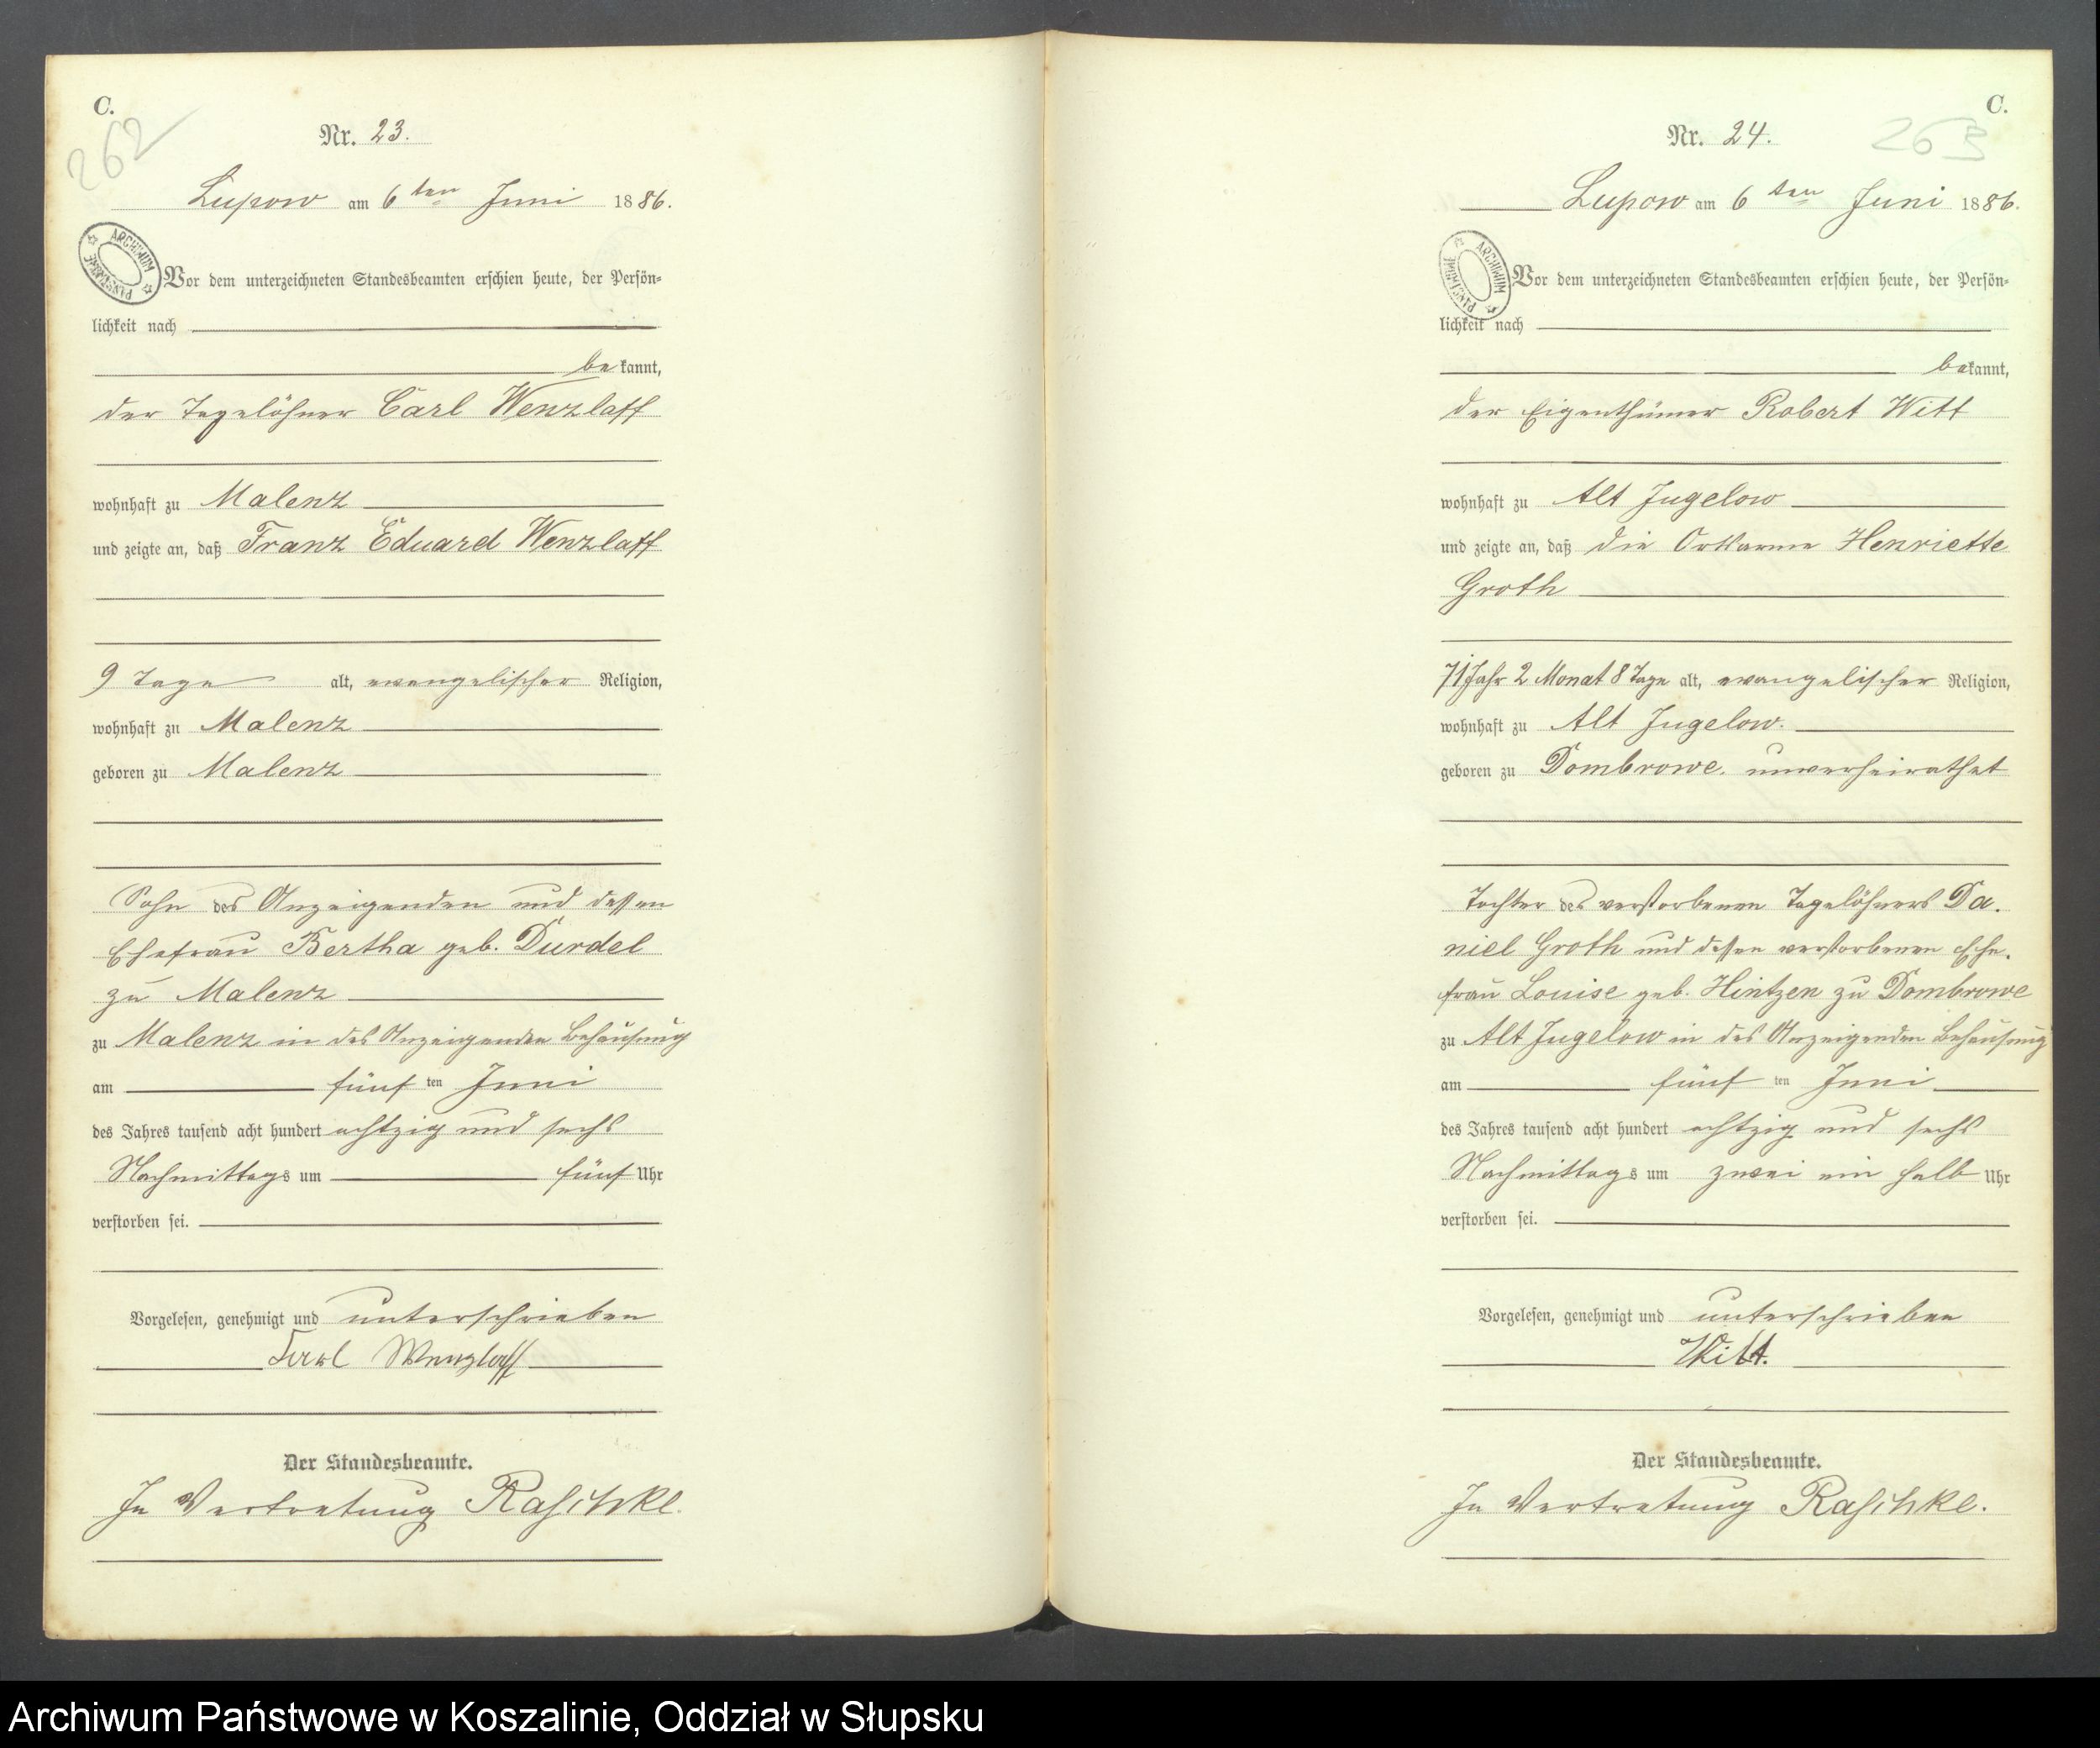 C.
262
Nr. 23.
Lupow am 6ten Juni 1886.
ARCHIWUM PAŃSTWOWE
Vor dem unterzeichneten Standesbeamten erschien heute, der Persön-
lichkeit nach
bekannt,
der Tagelöhner Carl Wenzlaff
wohnhaft zu Malenz
und zeigte an, daß Franz Eduard Wenzlaff
9 Tage alt, evangelischer Religion,
wohnhaft zu Malenz
geboren zu Malenz
Sohn des Anzeigenden und dessen
Ehefrau Bertha geb. Durdel
zu Malenz
zu Malenz in des Anzeigenden Behausung
am fünf ten Juni
des Jahres tausend acht hundert achtzig und sechs
Nachmittags um fünf Uhr
verstorben sei.
Vorgelesen, genehmigt und unterschrieben
Carl Wenzlaff
Der Standesbeamte.
In Vertretung Raschke.
C.
263
Nr. 24.
Lupow am 6ten Juni 1886.
ARCHIWUM PAŃSTWOWE
Vor dem unterzeichneten Standesbeamten erschien heute, der Persön-
lichkeit nach
bekannt,
der Eigenthümer Robert Witt
wohnhaft zu Alt Jugelow
und zeigte an, daß die Ortsarme Henriette
Groth
71 Jahr 2 Monat 8 Tage alt, evangelischer Religion,
wohnhaft zu Alt Jugelow.
geboren zu Dombrowe. unverheirathet
Tochter des verstorbenen Tagelöhners Da-
niel Groth und dessen verstorbenen Ehe-
frau Louise geb. Hintzen zu Dombrowe
zu Alt Jugelow in des Anzeigenden Behausung
am fünf ten Juni
des Jahres tausend acht hundert achtzig und sechs
Nachmittags um zwei ein halb Uhr
verstorben sei.
Vorgelesen, genehmigt und unterschrieben
Witt.
Der Standesbeamte.
In Vertretung Raschke.
Archiwum Państwowe w Koszalinie, Oddział w Słupsku